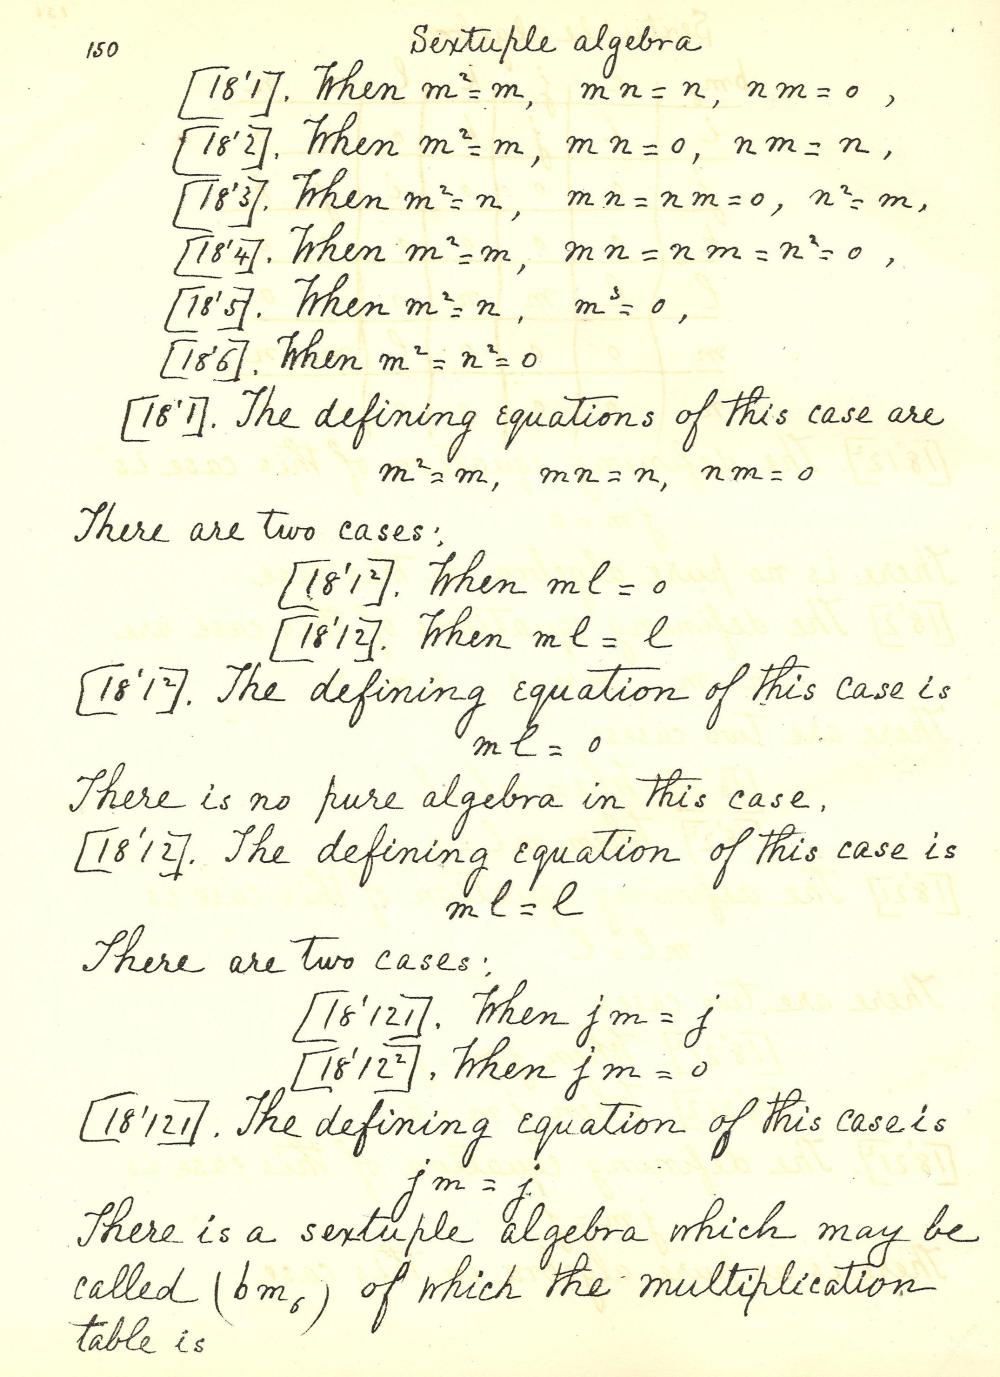 150 Sextuple algebra
[18'1]. When m²=m, mn=n, nm=0,
[18'2]. When m²=m, mn=0, nm=n,
[18'3]. When m²=n, mn=nm=0, n²=m,
[18'4]. When m²=m, mn=nm=n²=0,
[18'5]. When m²=n, m³=0,
[18'6]. When m²=n²=0
[18'1]. The defining equations of this case are
m²=m, mn=n, nm=0
There are two cases;
[18'1²]. When ml=0
[18'12]. When ml=l
[18'1²]. The defining equation of this case is
ml=0
There is no pure algebra in this case.
[18'12]. The defining equation of this case is
ml=l
There are two cases;
[18'121]. When jm=j
[18'12²]. When jm=0
[18'121]. The defining equation of this case is
jm=j
There is a sextuple algebra which may be
called (bm₆) of which the multiplication
table is